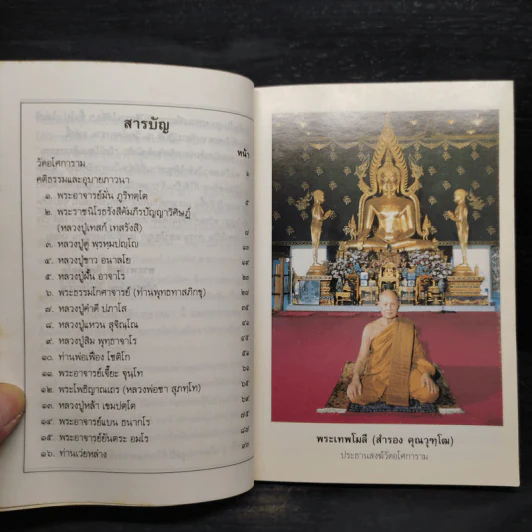 สารบัญ
หน้า
วัดอโศการาม ๑
คติธรรมและอุบายภาวนา
๑. พระอาจารย์มั่น ภูริทตฺโต ๕
๒. พระราชนิโรธรังสีคัมภีรปัญญาวิศิษฎ์
(หลวงปู่เทสก์ เทสรังสี) ๘
๓. หลวงปู่ดู่ พรหฺมปญฺโญ
๔. หลวงปู่ขาว อนาลโย
๕. หลวงปู่มั้น อาจาโร
๖. พระธรรมโกศาจารย์ (ท่านพุทธทาสภิกขุ) ๒๘
๗. หลวงปู่คำดี ปภาโส ๓๕
๘. หลวงปู่แหวน สุจิณฺโณ
๙. หลวงปู่สิม พุทฺธาจาโร
๑๐. ท่านพ่อเฟื่อง โชติโก ๕๑
๑๑. พระอาจารย์เจี๊ยะ จุนฺโท
๑๒. พระโพธิญาณเถร (หลวงพ่อชา สุภทฺโท) ๖๕
๑๓. หลวงปู่หล้า เขมปตฺโต
๑๔. พระอาจารย์แบน ธนากโร
๑๕. พระอาจารย์ยันตระ อมโร
๑๖. ท่านเว่ยหล่าง
พระเทพโมลี (สำรอง คุณวุฑฺโฒ)
ประธานสงฆ์วัดอโศการาม